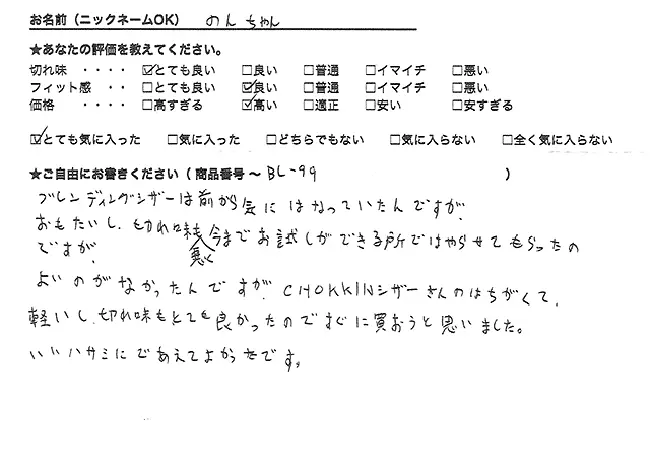 お名前（ニックネームOK） のんちゃん
★あなたの評価を教えてください。
切れ味 ・・・・ ☑とても良い □良い □普通 □イマイチ □悪い
フィット感 ・・ □とても良い ☑良い □普通 □イマイチ □悪い
価格 ・・・・ □高すぎる ☑高い □適正 □安い □安すぎる
☑とても気に入った □気に入った □どちらでもない □気に入らない □全く気に入らない
★ご自由にお書きください（ 商品番号～ BL-99 ）
ブレンディングシザーは前から気にはなっていたんですが、
おもたいし、切れ味も悪く今までお試しができる所ではやらせてもらったの
ですが、
よいのがなかったんですが、CHOKKINシザーさんのはちがくて、
軽いし、切れ味もとても良かったのですぐに買おうと思いました。
いいハサミにであえてよかったです。